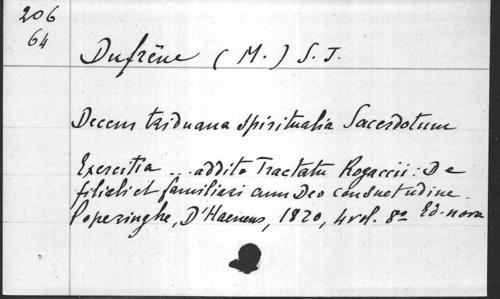 206
64
Dufrêne (M.) S.J.
Decem triduana spiritualia Sacerdotum
Exercitia ... addito Tractatu Rogaccii: De
filiali et familiari cum Deo consuetudine.
Poperinghe, D'Haenens, 1820, 4 vol. 8º Ed. nova